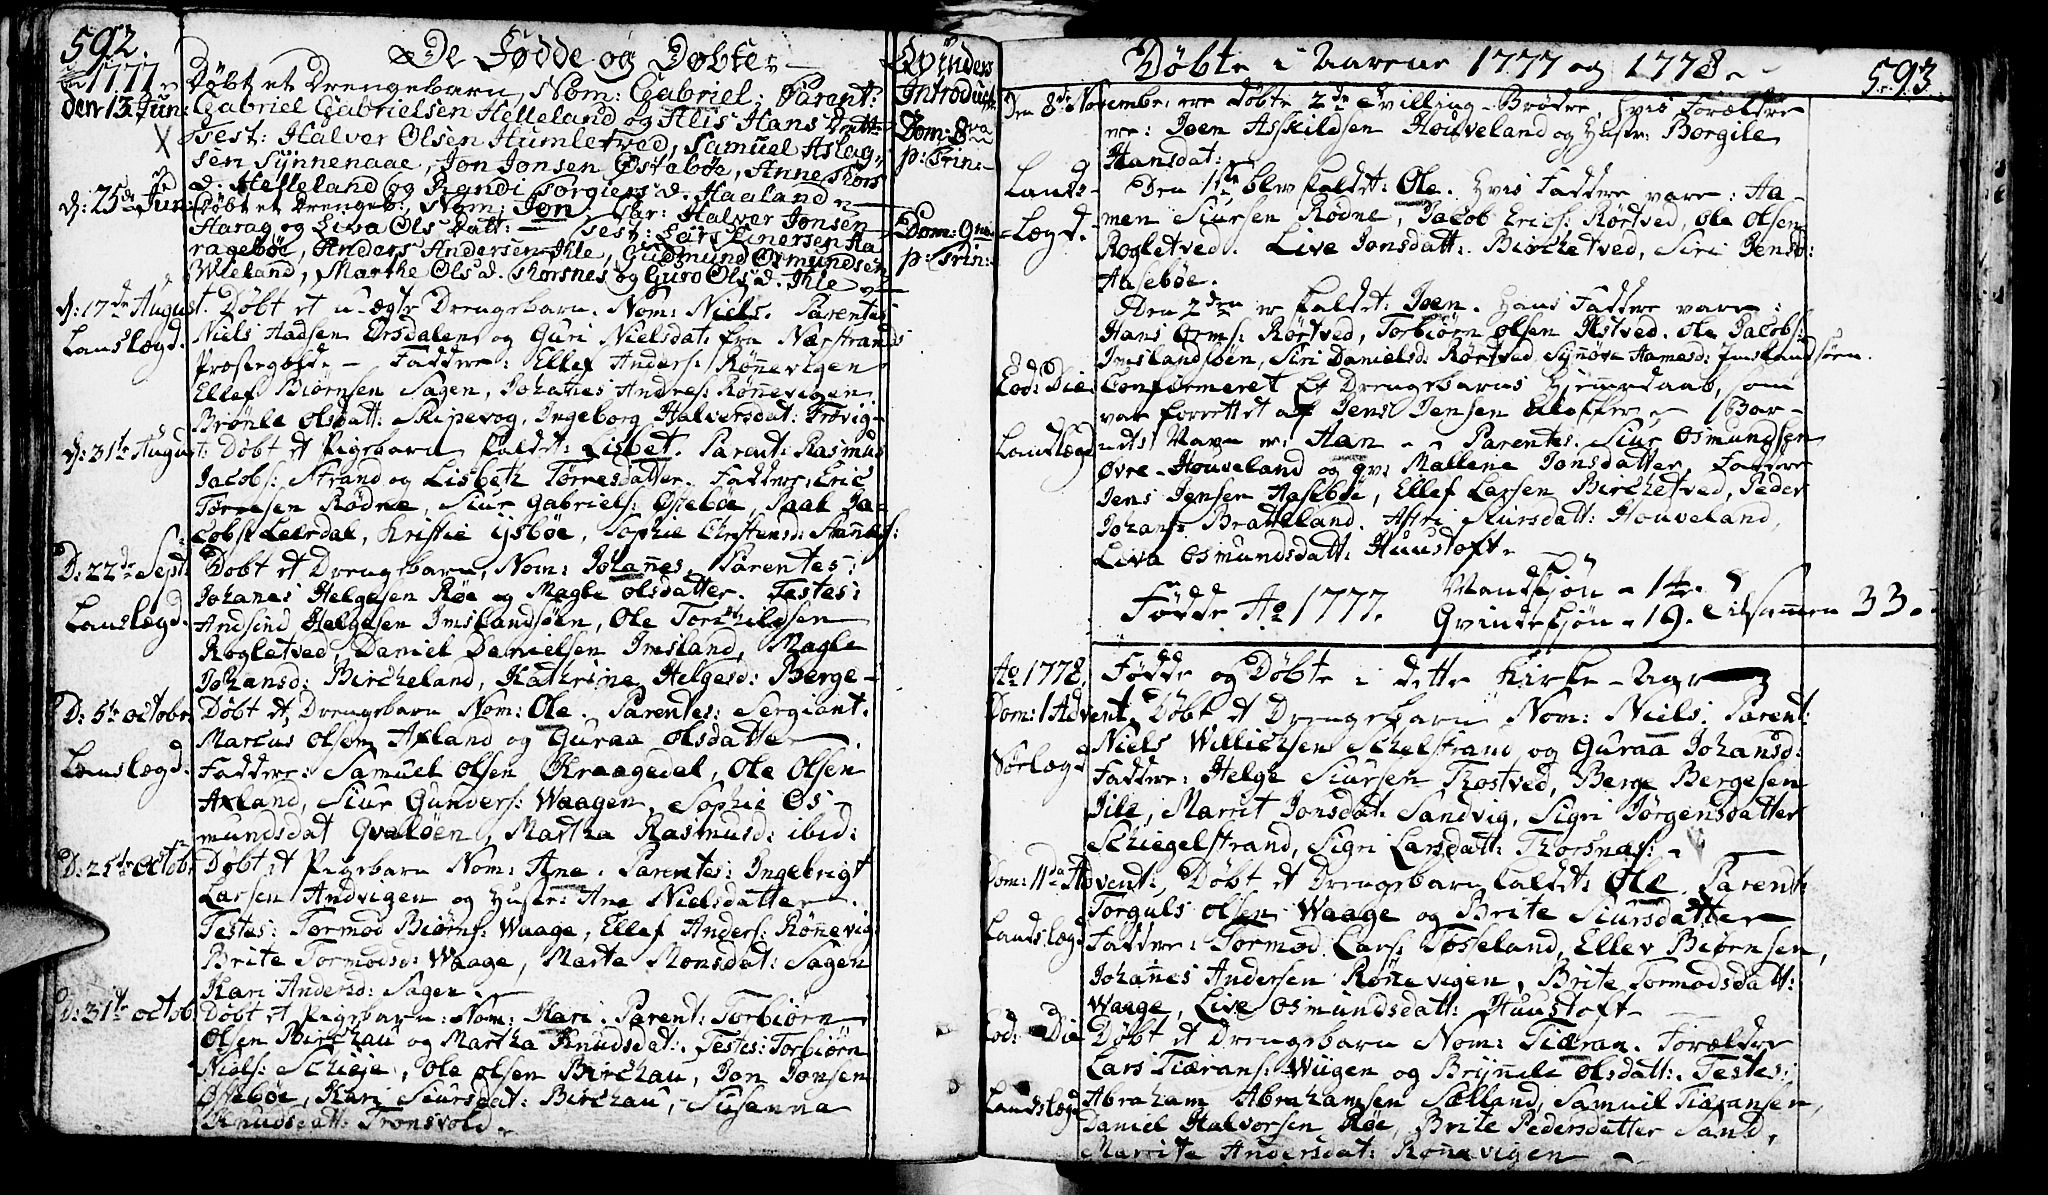 592.
De Fødde og Døbte
Qvinders
Introduct:
1777
Døbt et Drengebarn, Nom: Gabriel; Parent:
den 13 Jun: Gabriel Gabrielsen Helleland og Alis Hans Datter
Dom: 8va
p: Trin:
Test: Halver Olsen Humletved, Samuel Aslag-
sen Synnenaae, Jon Jonsen Østebøe, Anne Thors
d: Helleland og Randi Torgiersd. Haaland
d: 25de Jun: Døbt et Drengeb: Nom: Jon, Par: Halver Jonsen
Harag og Siva Ols Datt: Test: Lars Einersen Ha-
Dom: 9na
p: Trin:
ragebøe, Anders Andersen Ihle, Gudmund Osmundsen
Øleland, Marthe Olsd. Thorsnes og Guro Olsd. Ihle
d: 17de August. Døbt et u-ægte Drengebarn. Nom: Niels. Parentes
Landslægd. Niels Aadsen Orsdalen og Guri Nielsdat: fra Nærstrands
Præstegield. Faddere: Ellef Anders: Rønevigen
Ellef Biørnsen Sagen, Johannes Anders: Rønevigen.
Brønle Olsdatt: Skipevog, Ingeborg Halversdat: Frøvig
d: 31te August: Døbt et Pigebarn kaldet: Lisbet. Parent: Rasmus
Jacobs: Strand og Lisbeth Tørresdatter. Faddere: Eric
Tørresen Rødne, Siur Gabriels: Østebøe, Paal Ja-
cobs: Leerdal, Kristie ijsbøe, Sophie Christensd:
D: 22de Sept: Døbt et Drengebarn, Nom: Johannes. Parentes:
Landslægd. Johanes Helgesen Røe og Magle Olsdatter. Testes:
Andsind Helgesen Imslandsøen, Ole Torchildsen
Rogletved, Daniel Danielsen Imsland, Magle
Johansd: Bircheland, Kathrine Helgesd: Berge-
D: 5te octobr: Døbt et Drengebarn Nom: Ole. Parentes: Sergiant.
Marcus Olsen Axland og Guraa Olsdatter
Landslægd. Faddere: Samuel Olsen Kraagedal, Ole Olsen
Axland, Siur Gunders: Waagen, Sophie Os-
mundsdat Qvaløen, Martha Rasmusd: ibid:
D: 25de Octob: Døbt et Pigebarn Nom: Ane. Parentes: Ingebrigt
Larsen Andvigen og Hustr: Ane Nielsdatter.
Testes: Tormod Biørns: Waage, Ellef Anders: Rønevig
Brite Tormodsd: Waage, Marte Monsdat: Sagen
Kari Andersd: Sagen.
D: 31te octob: Døbt et Pigebarn: Nom: Kari. Parent: Torbiørn
Olsen Birchau og Martha Knudsdat:. Testes: Torbiørn
Niels: Schieje, Ole Olsen Birchau, Jon Jonsen
Østebøe, Kari Siursdat: Birchau, Susanna
Knudsdatt: Tronsvold.
Døbte i Aarene 1777 og 1778.
593.
Den 8de November ere døbte 2de Tvilling-Brødre, hvis Forældre
ere: Joen Askildsen Houveland og Hustr: Borgile
Hansdat:
Lands-
Lægd.
Den 1ste blev kaldet: Ole. Hvis Faddere vare: Aa-
men Siursen Rødne, Jacob Erics: Rørtved, Ole Olsen
Rogletved. Live Jonsdatt: Birchetved, Siri Jensd:
Aasebøe.
Den 2den er kaldet: Joen. Hans Faddere vare:
Hans Orms: Rørtved, Torbiørn Olsen Ilstved. Ole Jacobs:
Imslandsøen, Siri Danielsd: Rørtved Synøve Aamesd: Imslandsøen.
Eod: Die Confirmeret et Drengebarns Hiemedaab, som
var forrettet af Jens Jensen Klokker. Bar-
Landslægd
nets Navn er: Aan. Parentes. Siur Osmundsen
Øvre-Houveland og qv: Mallene Jonsdatter. Faddere
Jens Jensen Aasebøe, Ellef Larsen Birchetved, Peder
Johans: Bratteland. Astri Siursdatt: Houveland,
Liva Osmundsdatt: Huustoft.
Fødde Ao 1777. Mandkjøn - 14.
Qvindekjøn - 19. Tilsamen 33.
Ao 1778. Fødde og Døbte i dette Kirke-Aar
Dom: 1 Advent. Døbt et Drengebarn Nom: Niels. Parent:
Sørlægd
Niels Willichsen Schelstrand og Guraa Johansd:
Faddere: Helge Siursen Tostved, Berge Bergesen
Jile, Marrit Jonsdat: Sandvig, Sigri Jørgensdatter
Schiegelstrand, Sigri Larsdatt: Thorsnæs.
Dom: IIda Advent:, Døbt et Drengebarn kaldet: Ole. Parent:
Torguls Olsen Waage og Brite Siursdatter
Landslægd
Faddere: Tormod Lars: Tøsseland, Ellev Biørnsen,
Johannes Andersen Rønevigen, Brite Tormodsdatt:
Waage, Live Osmundsdatt: Huustoft
Eod: Die Døbt et Drengebarn Nom: Tiæran. Forældre
Lars Tiærans: Wiigen og Brynele Olsdatt:. Testes:
Landslægd
Abraham Abrahamsen Sælland, Samuil Tiæransen,
Daniel Halvorsen Røe, Brite Pedersdatter Sand,
Marrite Andersdat: Rønevigen